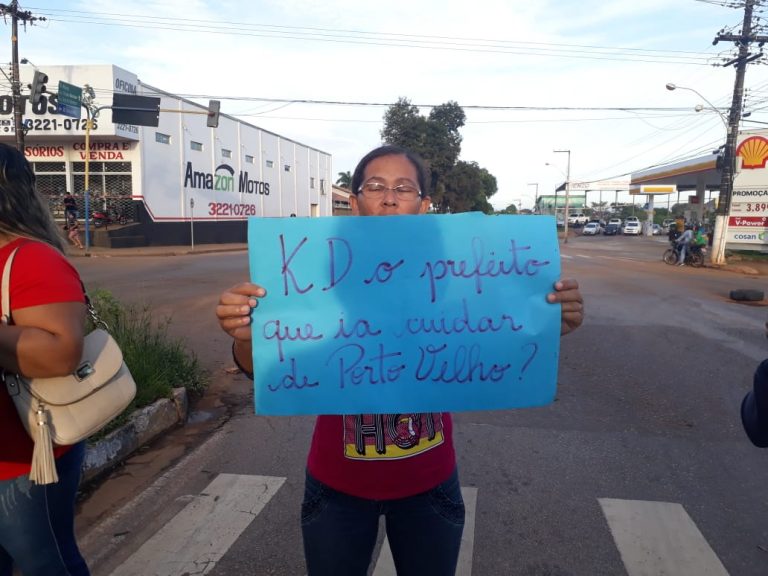 OFICINA
3221-0726
SÓRIOS
COMPRA E
VENDA
AmaZon MOTOS
3221-0726
KD o prefeito
que ia cuidar
de Porto Velho?
HOT
PROMOÇÃO
3.89
V-Power
cosan